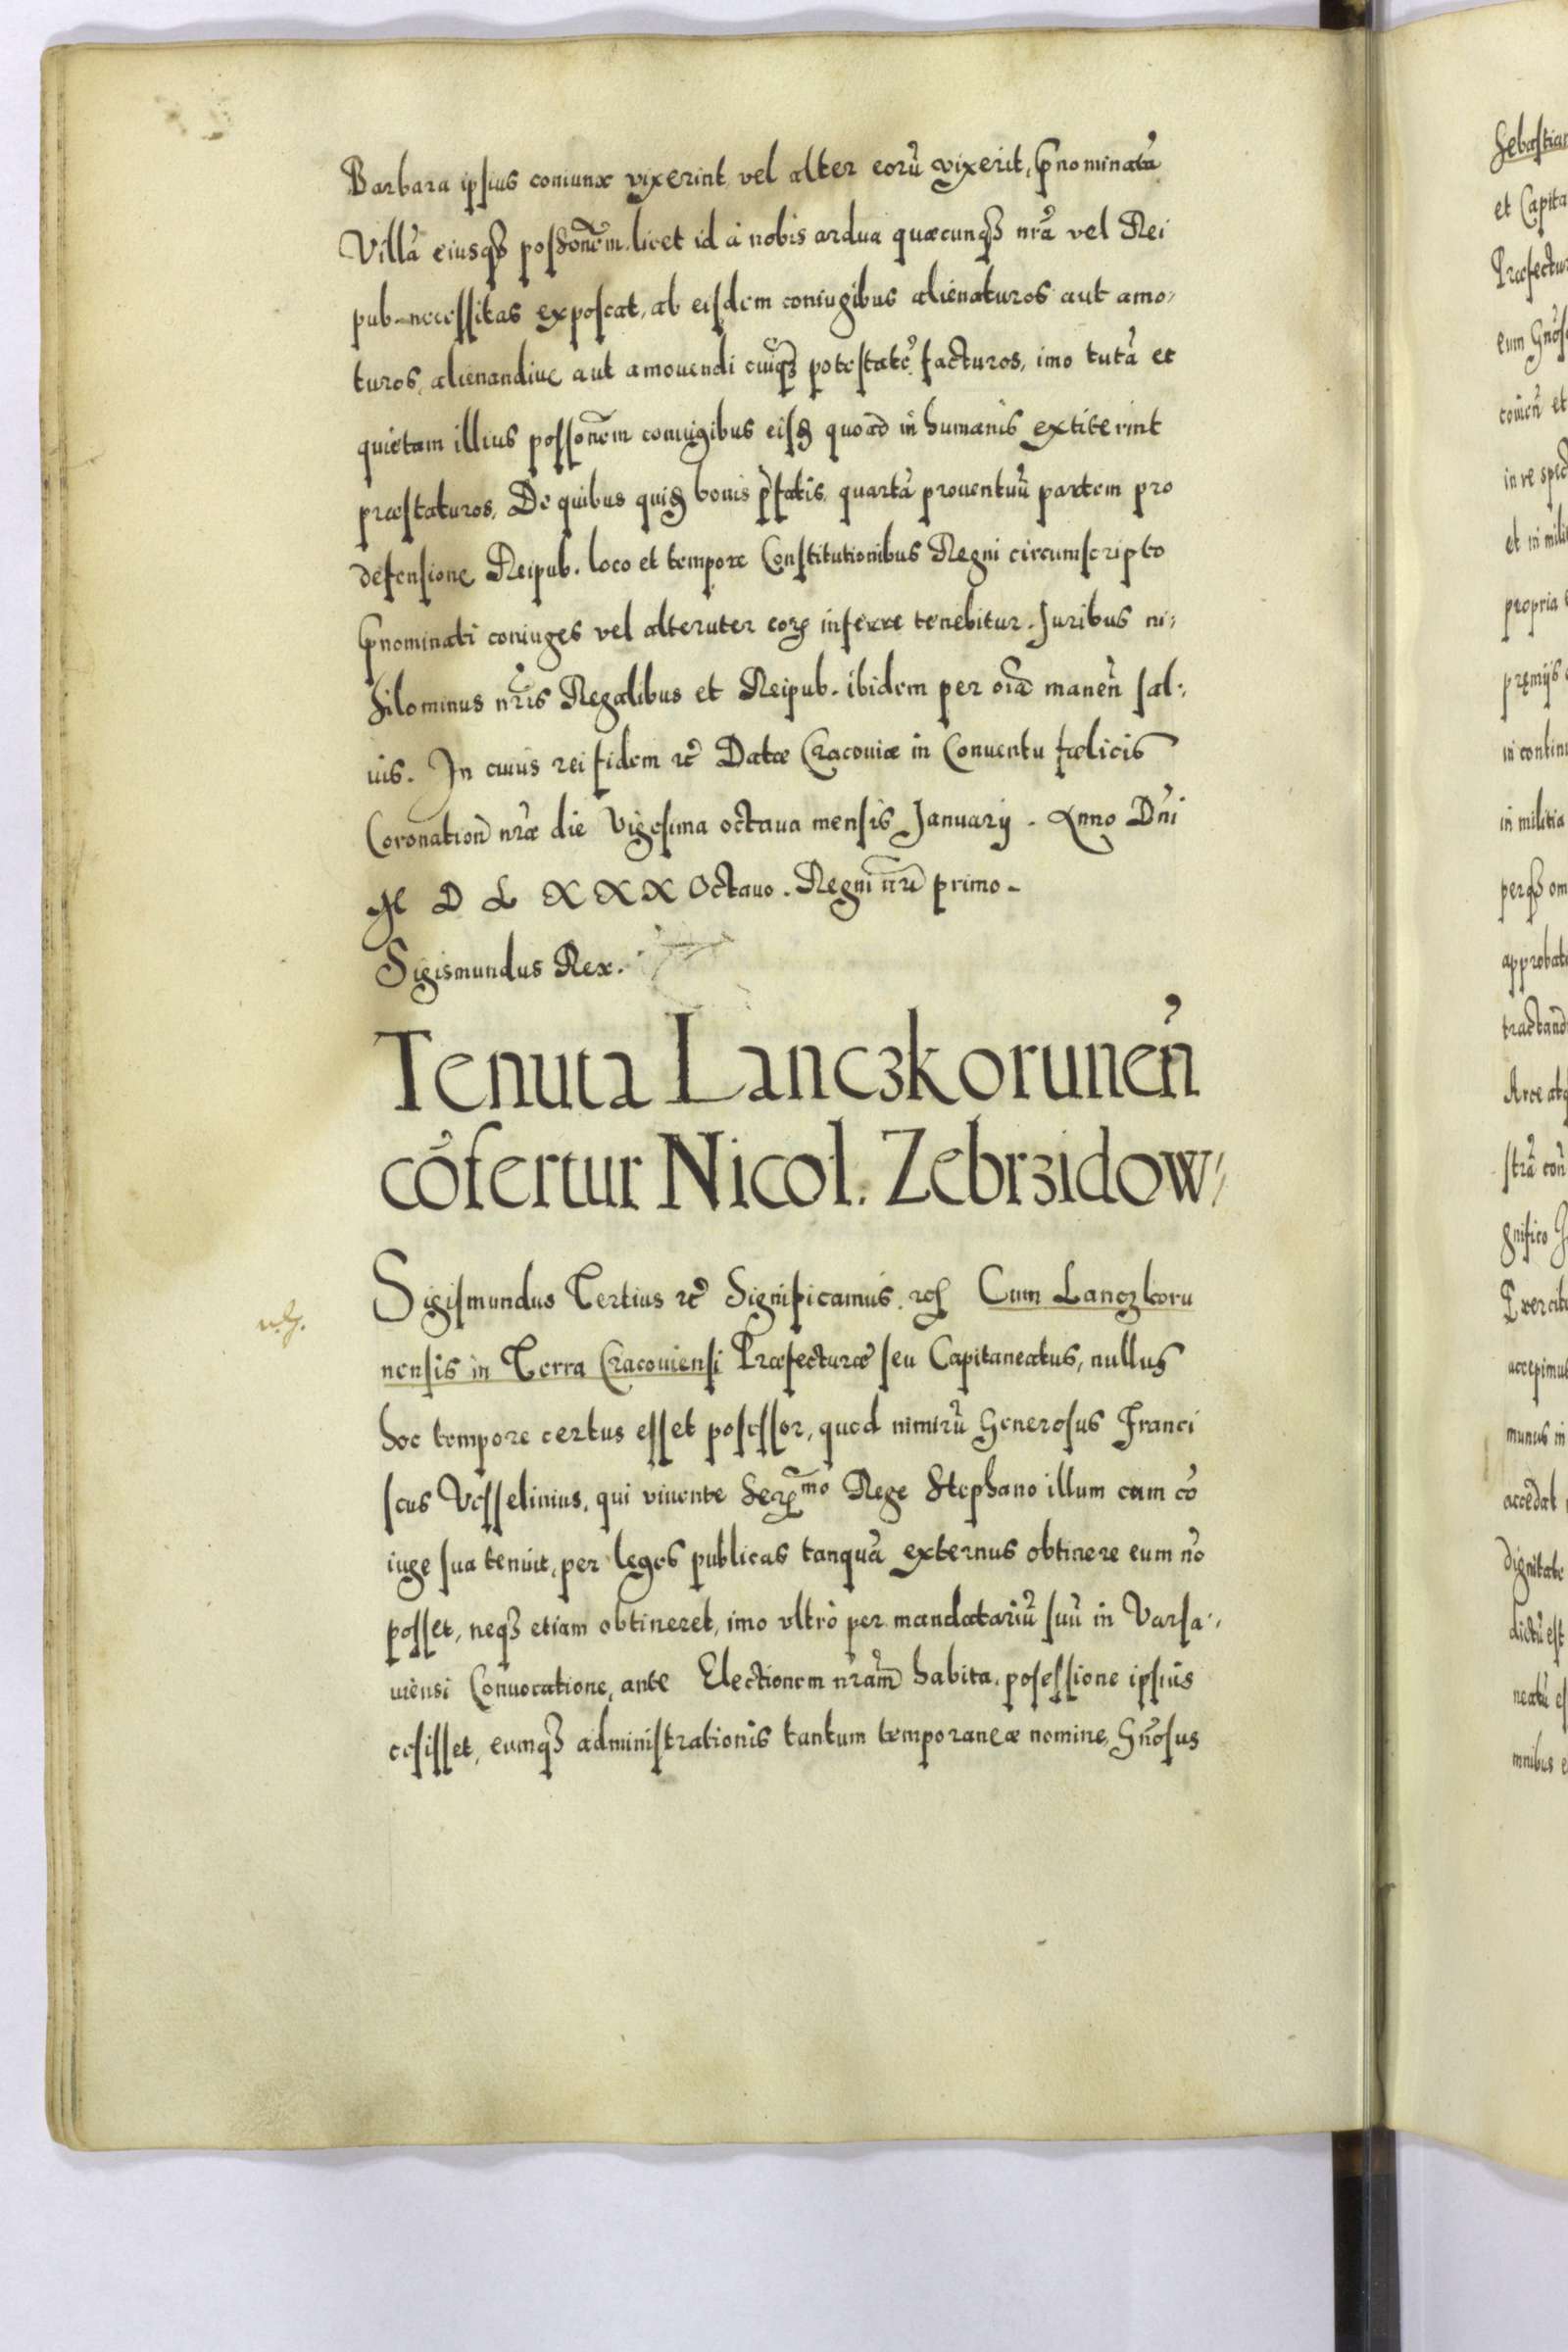 Barbara ipsius coniunx vixerint, vel alter eorũ vixerit, p̃nominatã
Villã eiusqȝ possõnem. licet id à nobis ardua quæcunqȝ nrã vel Rei
pub. necessitas exposcat, ab eisdem coniugibus alienaturos aut amo-
turos, alienandive aut amouendi cuiqȝ potestatẽ facturos, imo tutã et
quietam illius possonẽm coniugibus eisd quoad in humanis extiterint
præstaturos. De quibus quid bonis p̃fatis, quartã prouentuũ partem pro
defensione Reipub. loco et tempore Constitutionibus Regni circumscripto
p̃nominati coniuges vel alteruter eorꝝ inferre tenebitur. Juribus ni-
hilominus nr̃is Regalibus et Reipub. ibidem per oĩa manen̄ sal-
uis. In cuius rei fidem ꝛc̃ Datæ Cracouiæ in Conuentu fœlicis
Coronation̄ nr̃æ die Vigesima octaua mensis Januarij. Anno Dñi
M D L X X X Octauo. Regni nr̃i primo.
Sigismundus Rex.
Tenuta Lanczkorunen̄
cõfertur Nicol. Zebrzidow-
Sigismundus Tertius ꝛc̃ Significamus. ꝛc̃ Cum Lanczkoru
nensis in Terra Cracouiensi Præfecturæ seu Capitaneatus, nullus
hoc tempore certus esset posessor, quod nimirũ Generosus Franci
scus Vesselinius, qui viuente Serꝝmo Rege Stephano illum cum cõ
iuge sua tenuit, per leges publicas tanquã externus obtinere eum nõ
posset, neqȝ etiam obtineret, imo vltrò per mandatariũ suũ in Varsa-
uiensi Conuocatione, ante Electionem nrãm habita, posessione ipsius
cesisset, eumqȝ administrationis tantum temporaneæ nomine, Gñosus
Sebastian
et Capita
Præfectur
eum Gños
in re spec
et in mili
propria
pręmijs
in contin
in militia
perqȝ om
approbat
tractand
Arce atq
gnifico
Exercit
accepimus
munus in
accedat
dignitate
dictũ est
neatũ es
mnibus e